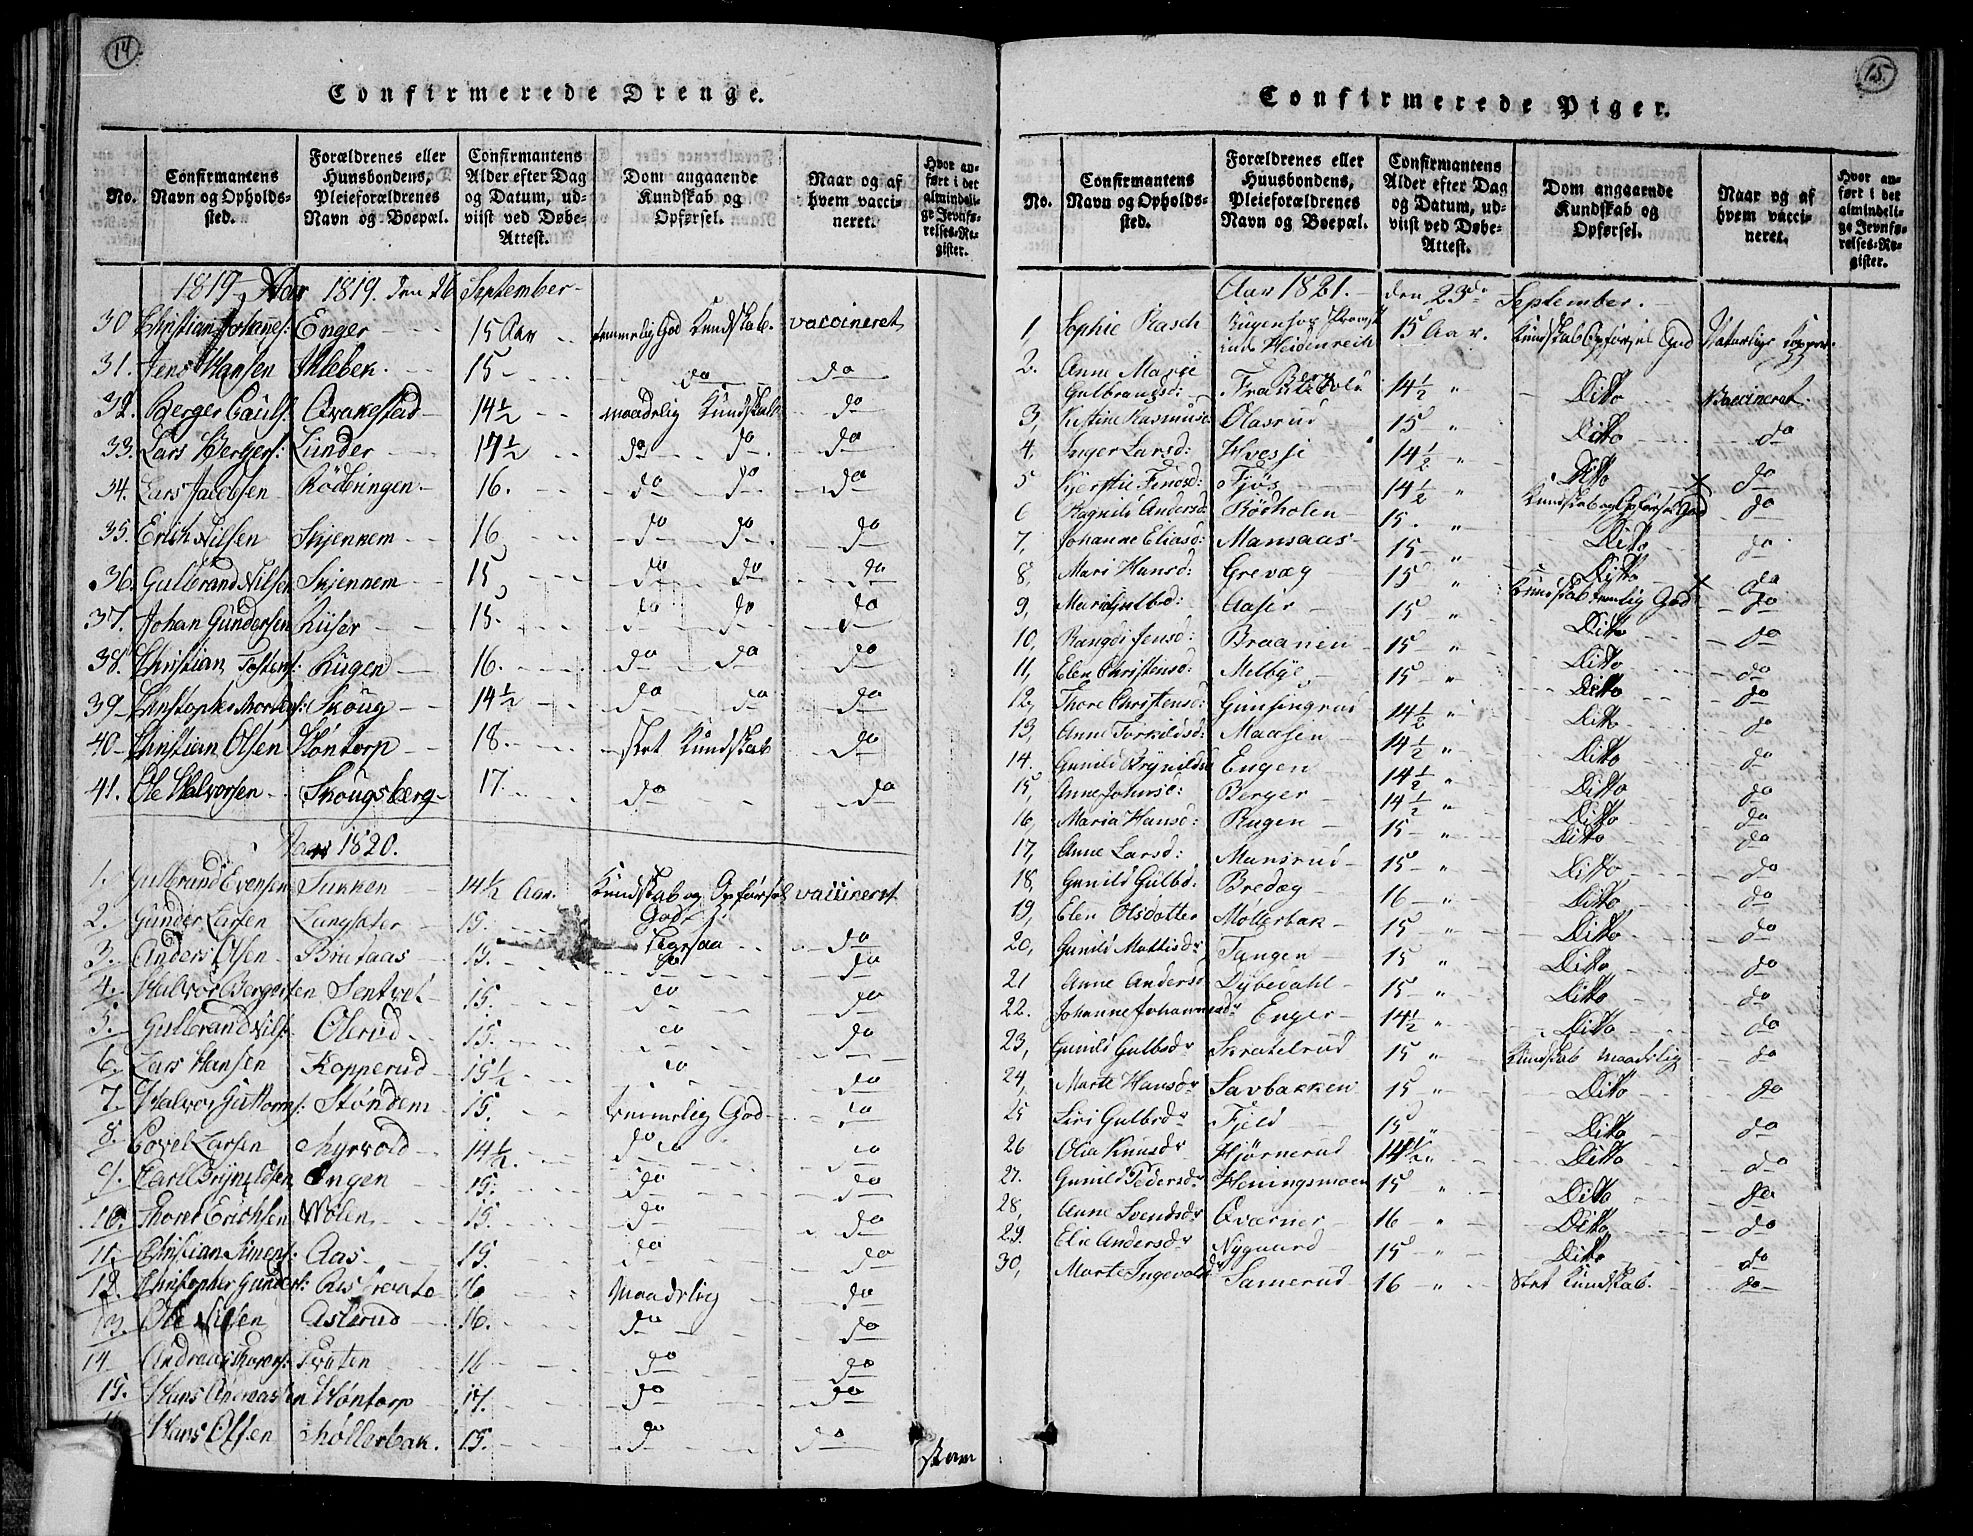 14
Confirmerede Drenge.
No.
Confirmantens Navn og Opholds-sted.
Forældrenes eller Huusbondens, Pleieforældrenes Navn og Boepæl.
Confirmantens Alder efter Dag og Datum, ud-viist ved Døbe-Attest.
Dom angaaende Kundskab og Opførsel.
Naar og af hvem vacci-neret.
Hvor an-ført i det almindeli-ge Jevnfø-relses-Re-gister.
1819 Aar 1819. den 26 September
30 Christian Johannes: Enger 15 Aar temmelig God Kundskab. vaccineret
31. Jens Hansen Ihlebek 15 do do
32. Berger Pauls: Qvakestad 14½ maadelig Kundskab do
33. Lars Bergers: Lunder 17½ do do do
34. Lars Jacobsen Rödbringen 16. do do do
35. Erich Nilsen Skjennem 16 do do do
36. Gulbrand Nilsen Skjennem 15 do do do
37. Johan Gundersen Kiisær 15. do do do
38. Christian Tostens: Rugen 16. do do do
39 Christopher Thorvalds: Skoug 14½ do do do
40 Christian Olsen Höntorp 18. slet Kundskab do
41. Ole Halvorsen Skougsberg 17. do do
Aar 1820.
1. Gulbrand Evensen Sukken 14½ Aar. Kundskab og Opførsel vaccineret
2. Gunder Larsen Langsæter 15. God
3. Anders Olsen Brutaas 15. ligesaa do
4. Halvor Bergersen Sentvet 15. do do
5. Gulbrand Nils: Olerud 15. do do
6. Lars Hansen Kopperud 15½ do do
7. Halvor Guttorms: Stöndem 15. temmelig God do
8. Povel Larsen Myrvold 14½ do do
9. Carl Brynildsen Engen 15. do do
10. Thorer Erichsen Wolen 15. do do
11. Christian Simens: Aas 15. do do
12. Christopher Gunders: 16 Maadelig do
13. Ole Nilsen Asterud 16. do do
14 Andreas Thorers: Braten 16 do do
15. Hans Andreassen Höntorp 17. do do
Hans Olsen Möllerbak. 15. do do
15.
Confirmerede Piger.
No.
Confirmantens Navn og Opholds-sted.
Forældrenes eller Huusbondens, Pleieforældrenes Navn og Boepæl.
Confirmantens Alder efter Dag og Datum, ud-viist ved Døbe-Attest.
Dom angaaende Kundskab og Opførsel.
Naar og af hvem vacci-neret.
Hvor an-ført i det almindeli-ge Jevnfø-relses-Re-gister.
Aar 1821. den 23de September.
1, Sophie Rasch Heidenreich 15 Aar. Kundskab Opførsel God Naturlige Kopper
2. Anne Marie Gulbrandsd: 14½ " Ditto Vaccineret
3, Kistine Rasmusd: Olasrud 15 " Ditto do
4, Inger Larsd: Hvessi 14½ " Ditto do
5 Kjerstie Findsd: Fjös 14½ " Kundskab og Opførsel God do
6 Ragnild Andersd: Rödholen 15. " Ditto do
7, Johanne Eliasd: Mansaas 15 " Ditto do
8, Mari Hansd: Grevæg 15 " Kundskab temlig God do
9, Marie Gulbd: Aaser 15 " Ditto do
10, Rangdi Jensd: Braanen 15 " Ditto do
11, Elen Christensd: Melbye 15 " Ditto do
12, Thore Christensd: Gunsingrud 14½ " Ditto do
13, Anne Torkildsd: Maasen 14½ " Ditto do
14. Gunild Brynildsd: Engen 14½ " Ditto do
15, Anne Johnsd: Berger 14½ " Ditto do
16, Maria Hansd: Rugen 15 " Ditto do
17, Anne Larsd: Mansrud 15 " Ditto do
18, Gunild Gulbd: Bredæg 16 " Ditto do
19, Elen Olsdatter Möllerbak 15 " Ditto do
20, Gunild Mattisdr Tangen 15 " Ditto do
21 Anne Andersd Dybedahl 15 " Ditto do
22. Johanne Johannesdr Enger 14½ " Ditto do
23, Gunild Gulbsdr Skratelrud 15 " Kundskab maadelig do
24, Marte Hansdr Savbakken 15 " Ditto do
25 Siri Gulbsdr Fjeld 15 " Ditto do
26 Olia Knudsdr Hjörnerud 14½ " Ditto do
27. Gunild Pedersdr Heningsmoen 15 " Ditto do
28, Anne Svendsdr Qværner 16 " Ditto do
29. Elie Andersdr Nygaard 15 " Ditto do
30, Marte Ingevoldsdr Samerud 16 " Slet Kundskab. do